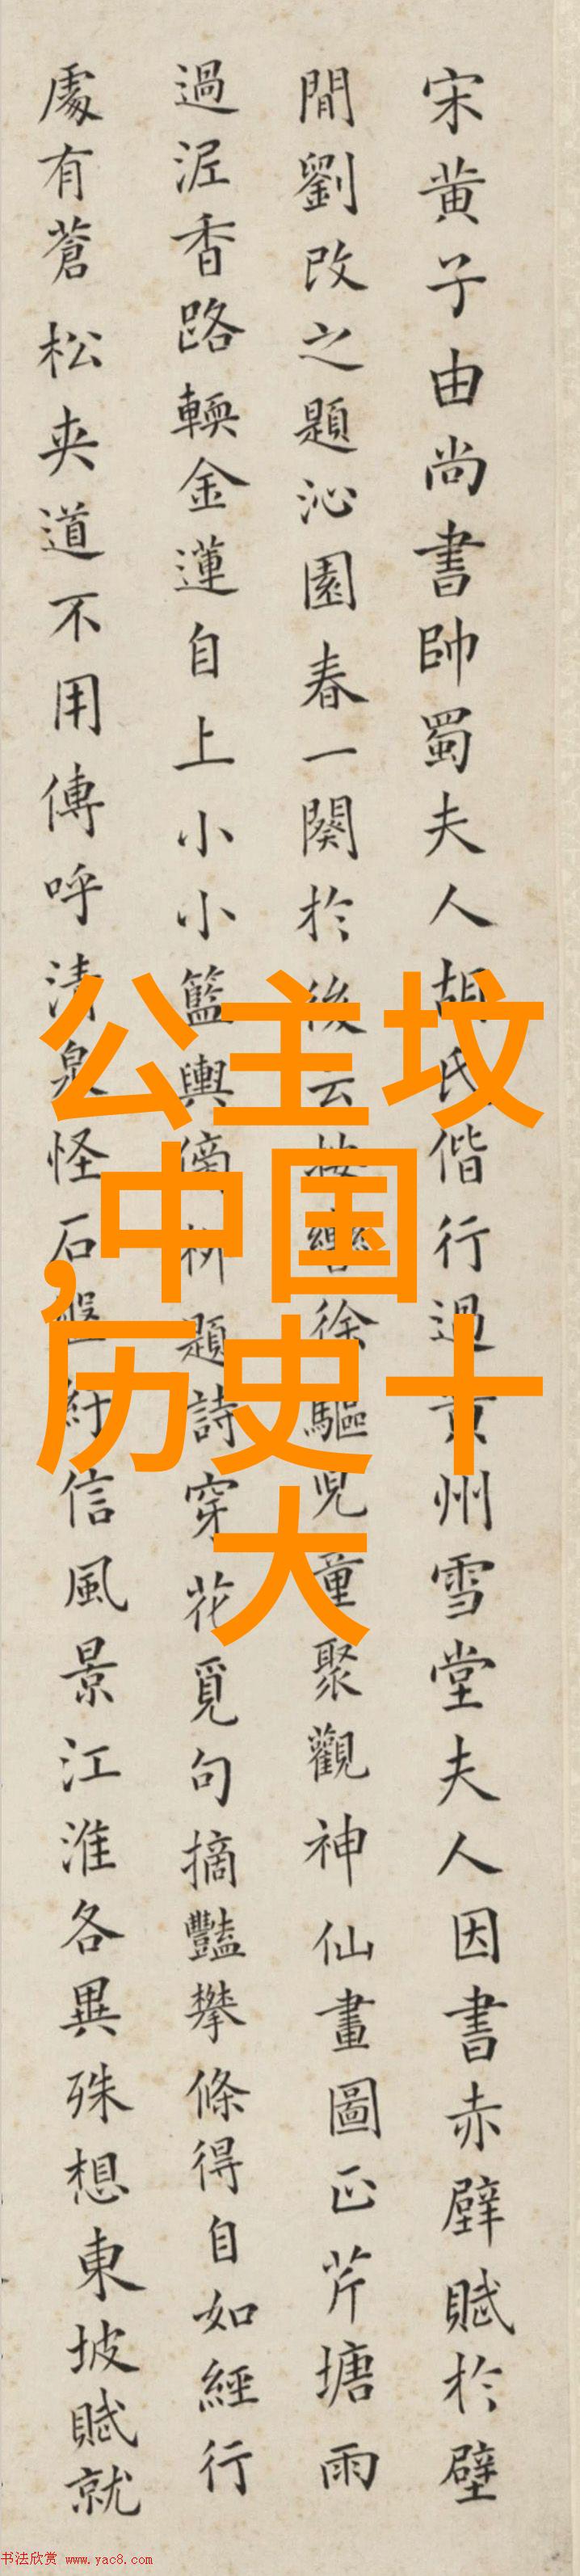 宋黄子由尚書帥蜀夫人胡氏偕行過黄州雪堂夫人因書赤壁賦於壁
閒劉改之題沁園春一闋於後云按轡徐驅兒童聚觀神仙畫圖正芹塘雨
過泥香路輭金蓮自上小小籃輿傍柳題詩穿花覓句摘豔攀條得自如經行
處有蒼松夾道不用傳呼清泉怪石盤紆信風景江淮各異殊想東坡賦就
公主坟
,中国
历史十
大
书法欣赏 www.yac8.com